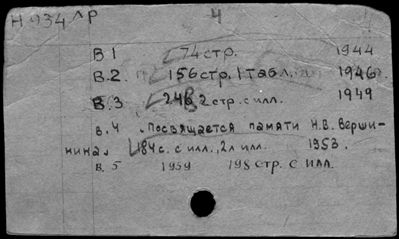 Н 934 ЛР 4
В 1 174 стр. 1944
В.2. 156 стр. 1 табл. 1946
В.3 248, 2 стр. с илл. 1949
в. 4 Посвящается памяти Н.В. Верши-
нина. 184 с. с илл., 2 л илл. 1953.
В. 5 1959 198 стр. с илл.